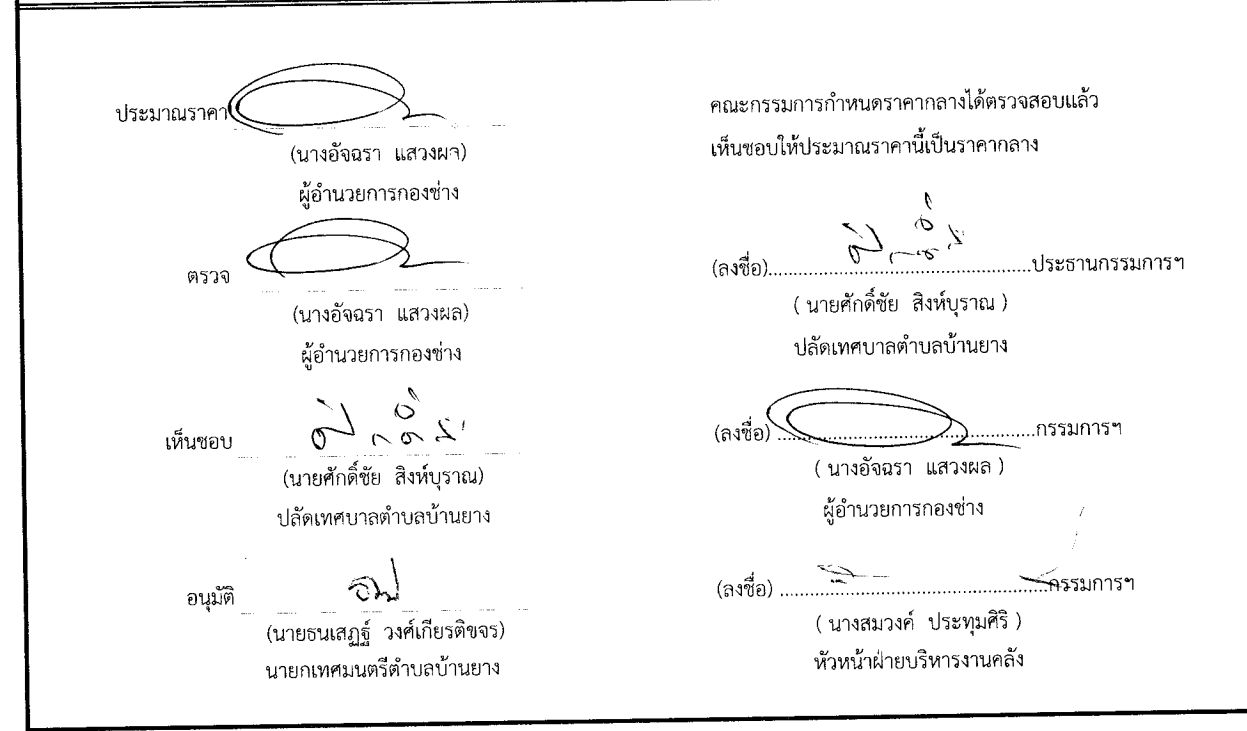 ประมาณราคา
(นางอัจฉรา แสวงผล)
ผู้อำนวยการกองช่าง
ตรวจ
(นางอัจฉรา แสวงผล)
ผู้อำนวยการกองช่าง
เห็นชอบ
(นายศักดิ์ชัย สิงห์บุราณ)
ปลัดเทศบาลตำบลบ้านยาง
อนุมัติ
(นายธนเสฏฐ์ วงศ์เกียรติขจร)
นายกเทศมนตรีตำบลบ้านยาง
คณะกรรมการกำหนดราคากลางได้ตรวจสอบแล้ว
เห็นชอบให้ประมาณราคานี้เป็นราคากลาง
(ลงชื่อ)................................................ประธานกรรมการฯ
( นายศักดิ์ชัย สิงห์บุราณ )
ปลัดเทศบาลตำบลบ้านยาง
(ลงชื่อ) ................................................กรรมการฯ
( นางอัจฉรา แสวงผล )
ผู้อำนวยการกองช่าง
(ลงชื่อ) ................................................กรรมการฯ
( นางสมวงค์ ประทุมศิริ )
หัวหน้าฝ่ายบริหารงานคลัง